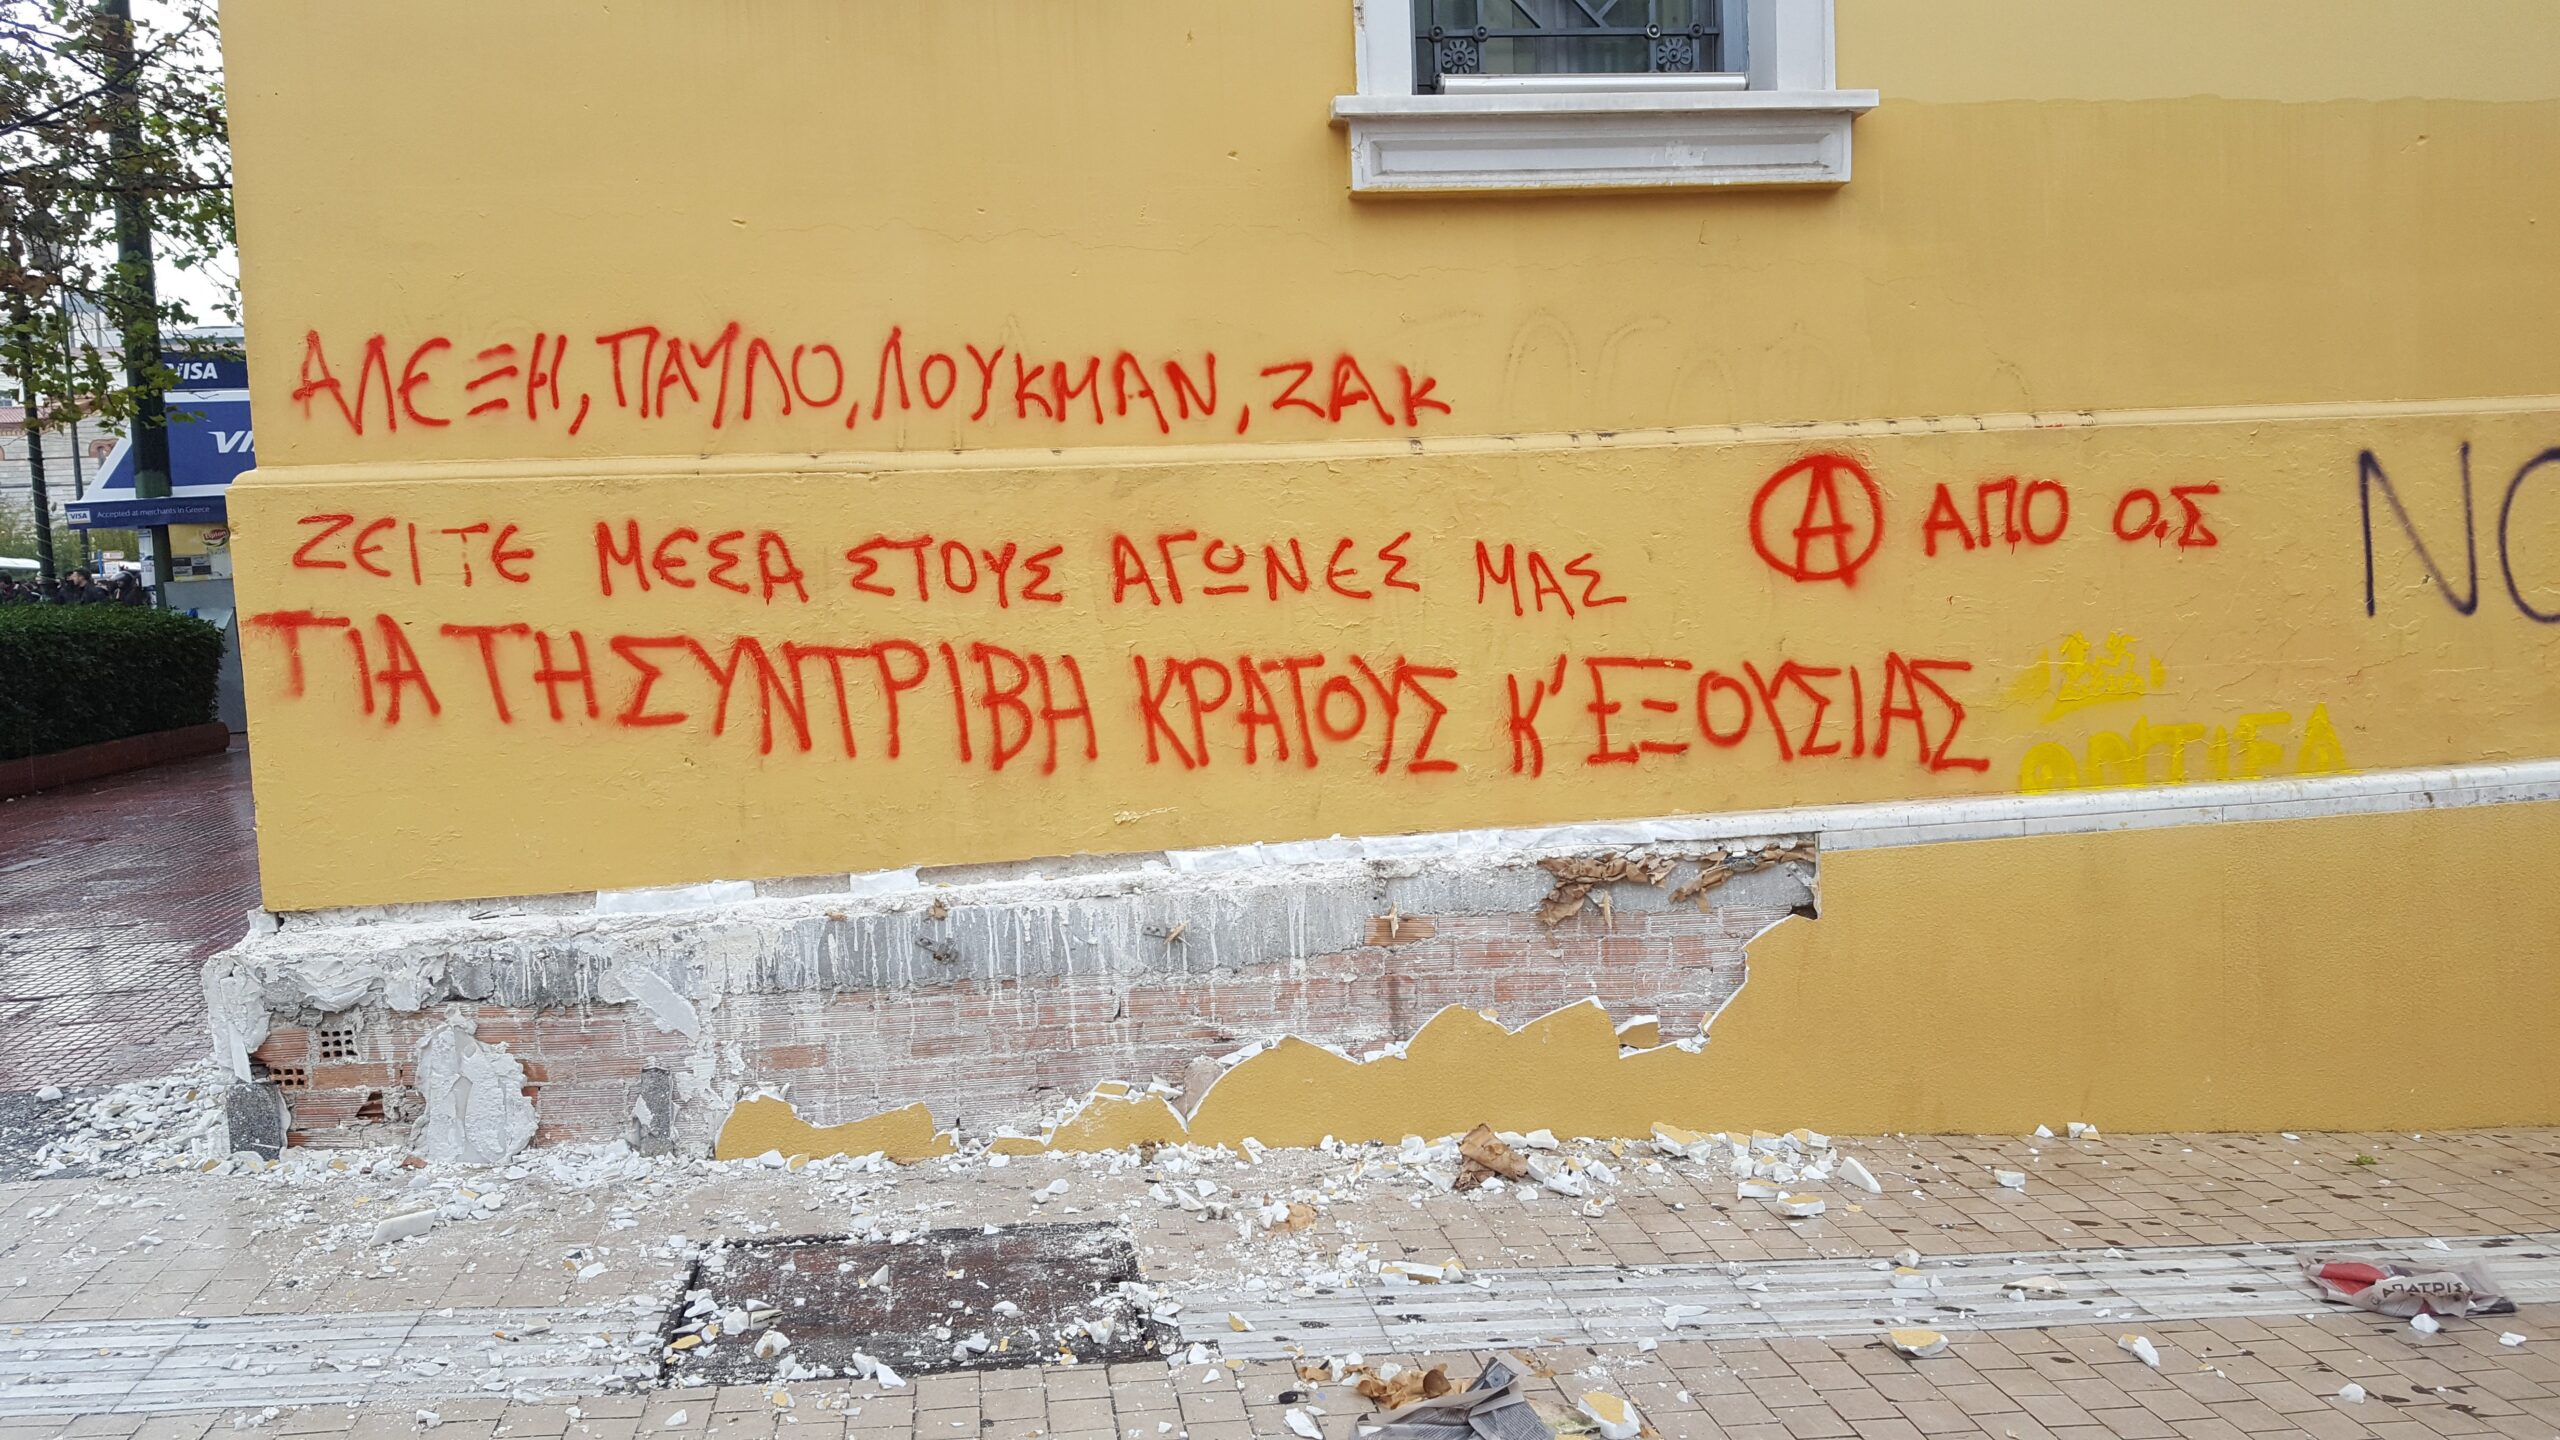 ΑΛΕΞΗ, ΠΑΥΛΟ, ΛΟΥΚΜΑΝ, ΖΑΚ
ΖΕΙΤΕ ΜΕΣΑ ΣΤΟΥΣ ΑΓΩΝΕΣ ΜΑΣ
Ⓐ ΑΠΟ Ο.Σ
ΓΙΑ ΤΗ ΣΥΝΤΡΙΒΗ ΚΡΑΤΟΥΣ Κ' ΕΞΟΥΣΙΑΣ
NO
VISA
VISA Accepted at merchants in Greece
Lipton
ΑΠΑΤΡΙΣ